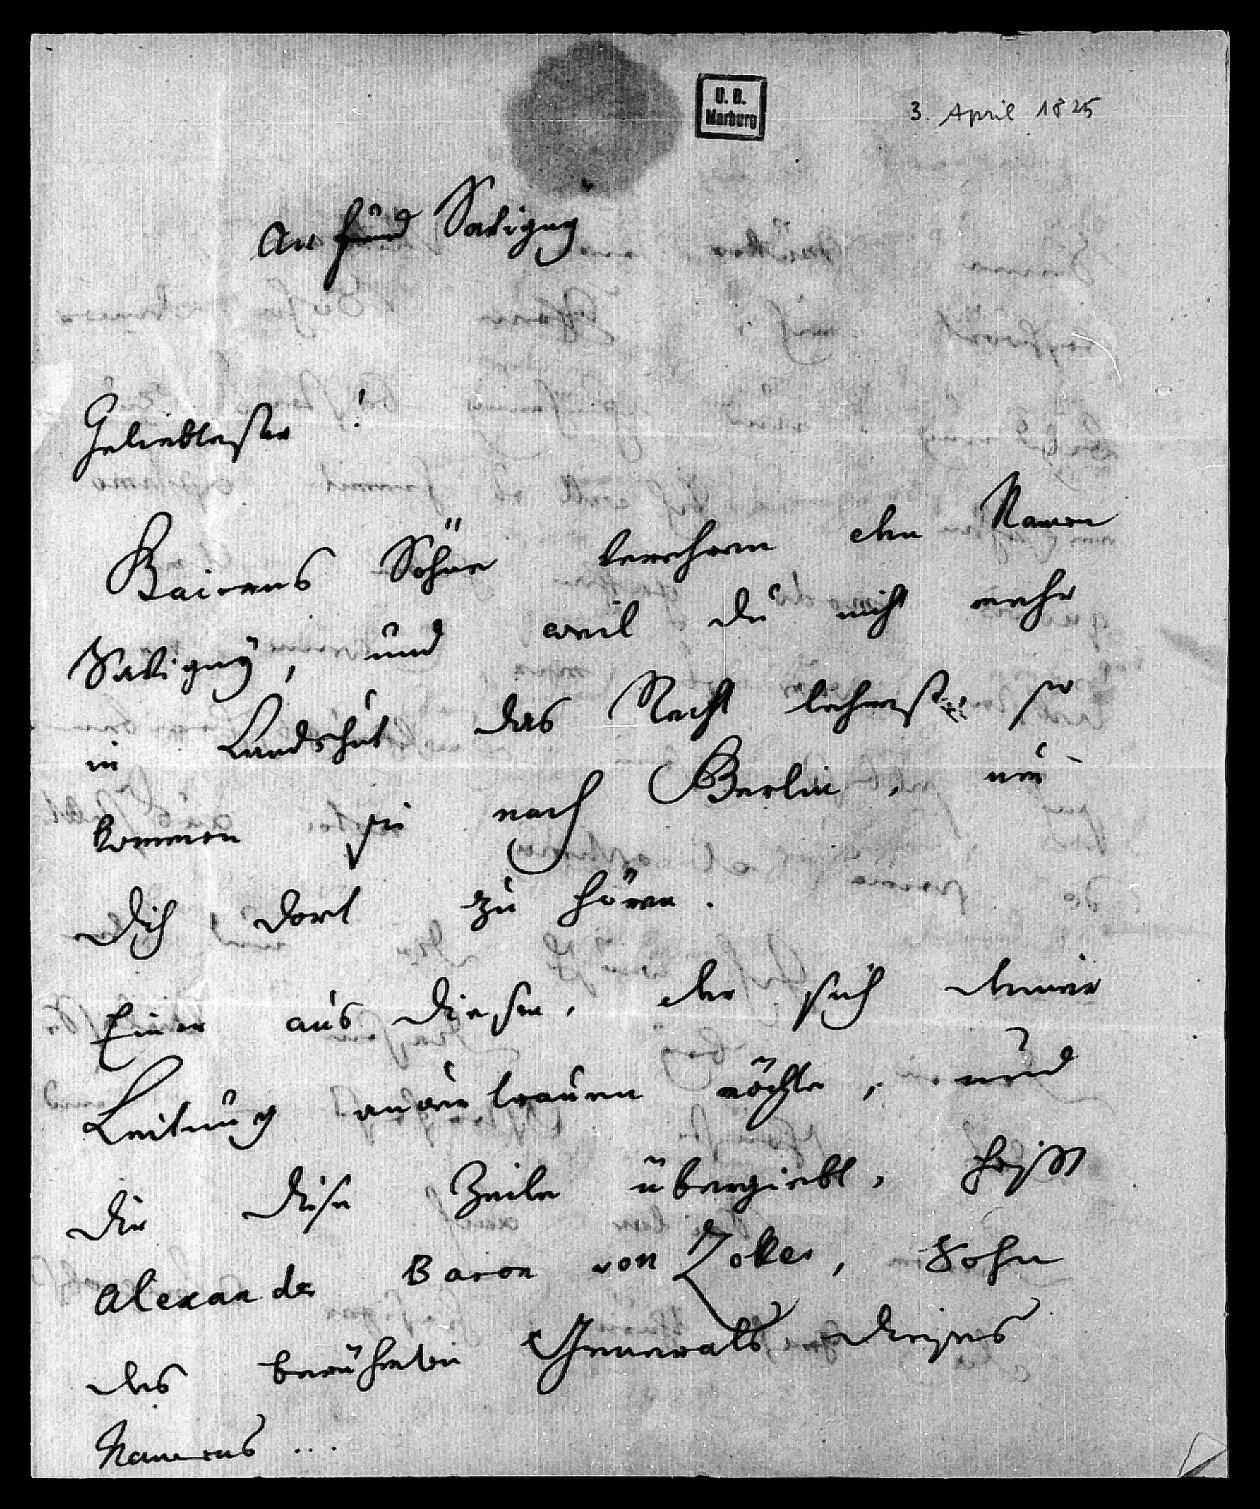 U. B.
Marburg
3. April 1825
An Savigny
Geliebtester!
Baierns Söhne verehren den Namen
Savigny, und weil du nicht mehr
in Landshut das Recht lehrest, so
kommen sie nach Berlin, um
Dich dort zu hören.
Einer aus diesen, der sich deiner
Leitung anvertrauen möchte, und
Dir diese Zeilen übergiebt, heißt
Alexander Baron von Zoller, Sohn
des berühmten Generals dieses
Namens ...